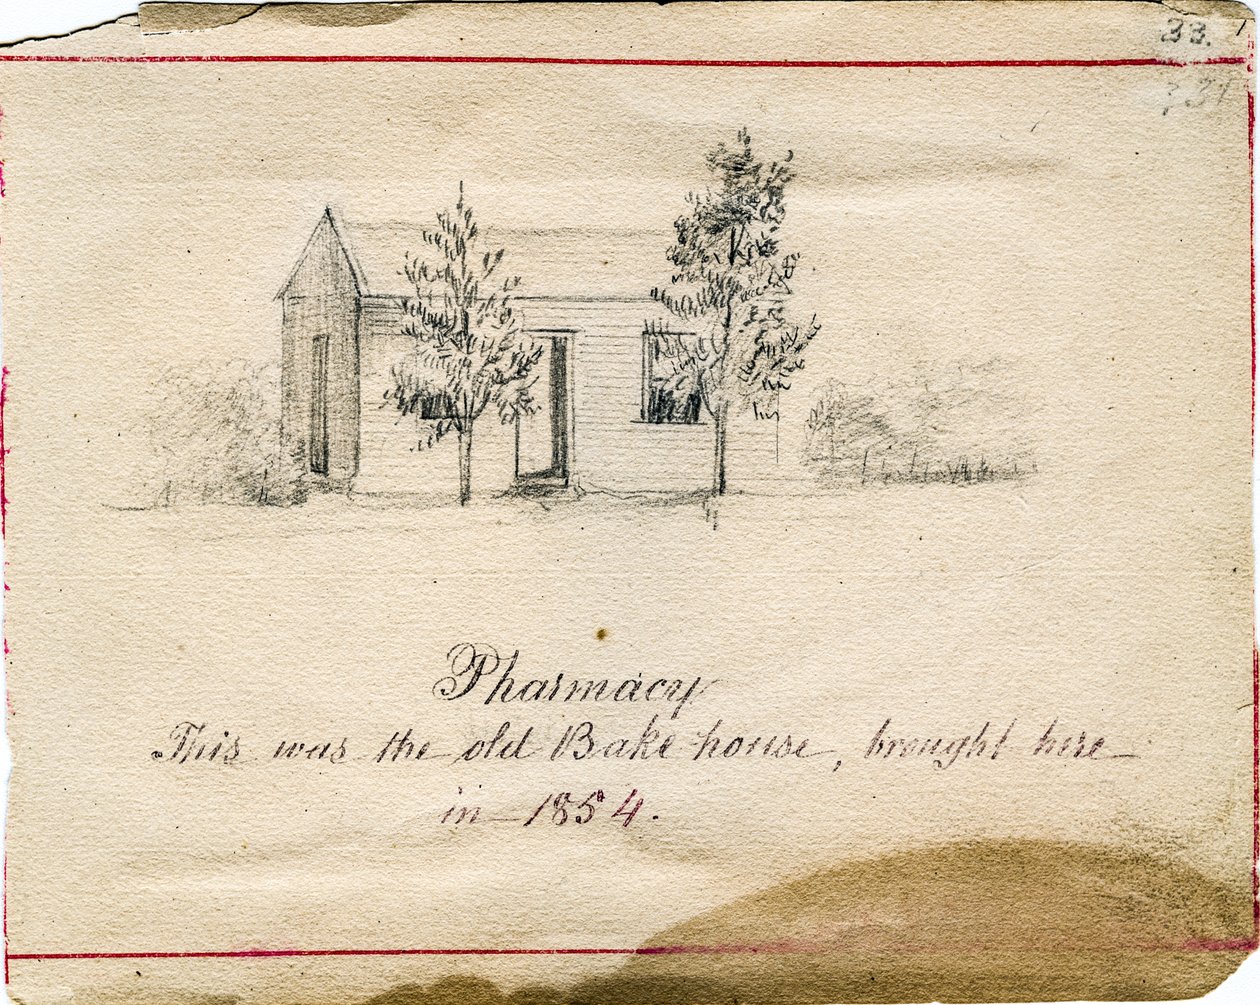 33.
Pharmacy
This was the old Bake house, brought here
in 1854.